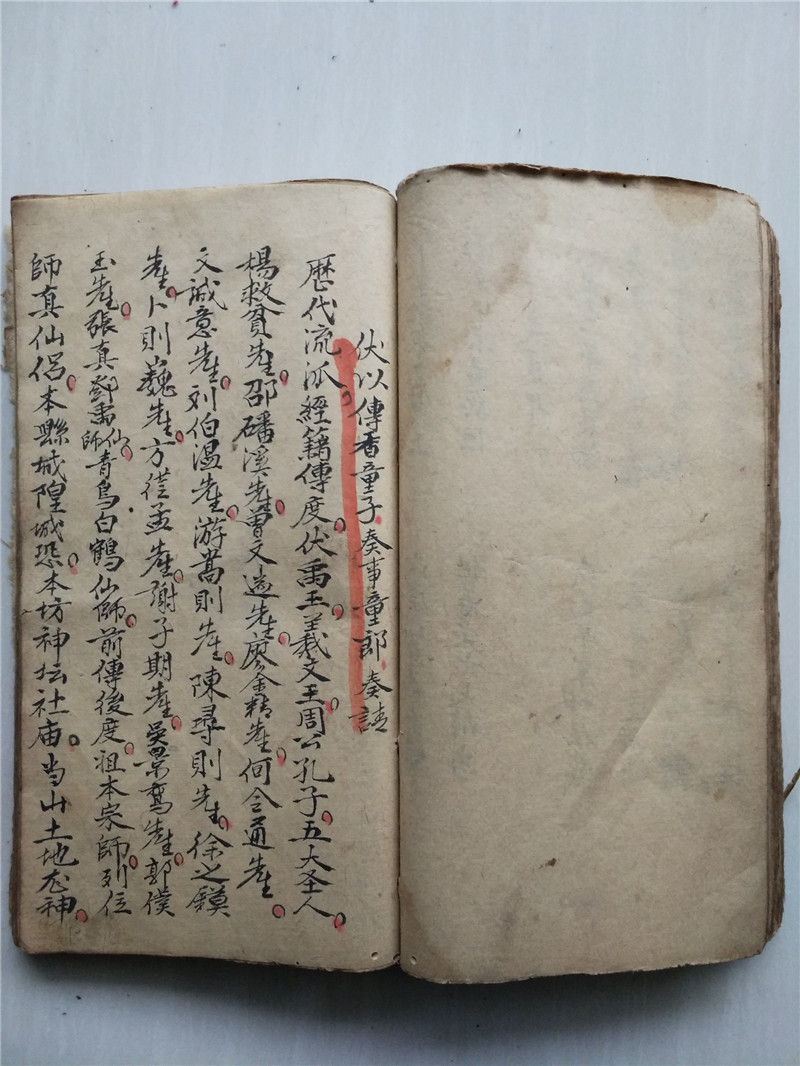 伏以傳香童子奏事童郎奏請
歷代流派經籍傳度伏禹王羲文王周公孔子五大圣人
楊救貧先生邵磻溪先生曾文遄先生廖金精先生何令通先生
文誠意先生刘伯温先生游嵩則先生陳尋則先生徐之鏌
先生卜則巍先生方従孟先生謝子期先生吳景鸞先生郭僕
玉先生張真鄧禹仙師青烏白鶴仙師前傳後度祖本宗師列位
師真仙侣本縣城隍城恐本坊神坛社庙当山土地龙神